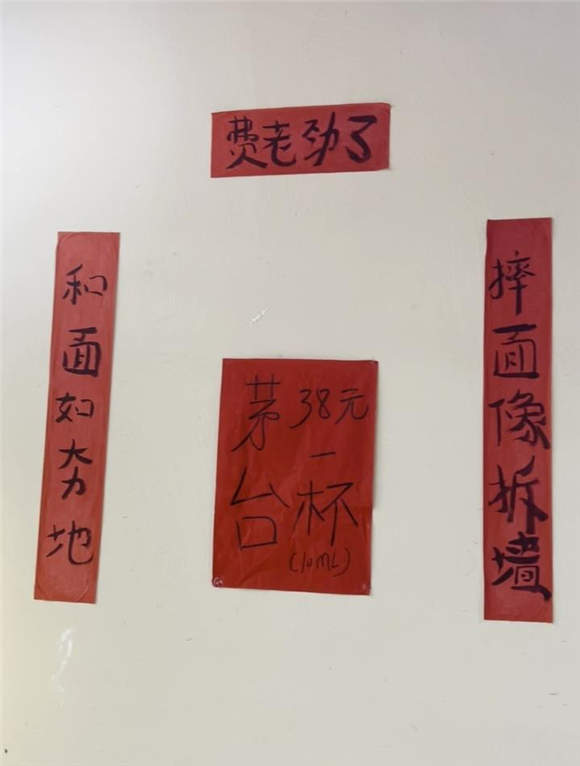 费老劲了
和面如夯地
摔面像拆墙
茅台
38元
一杯
(10ML)